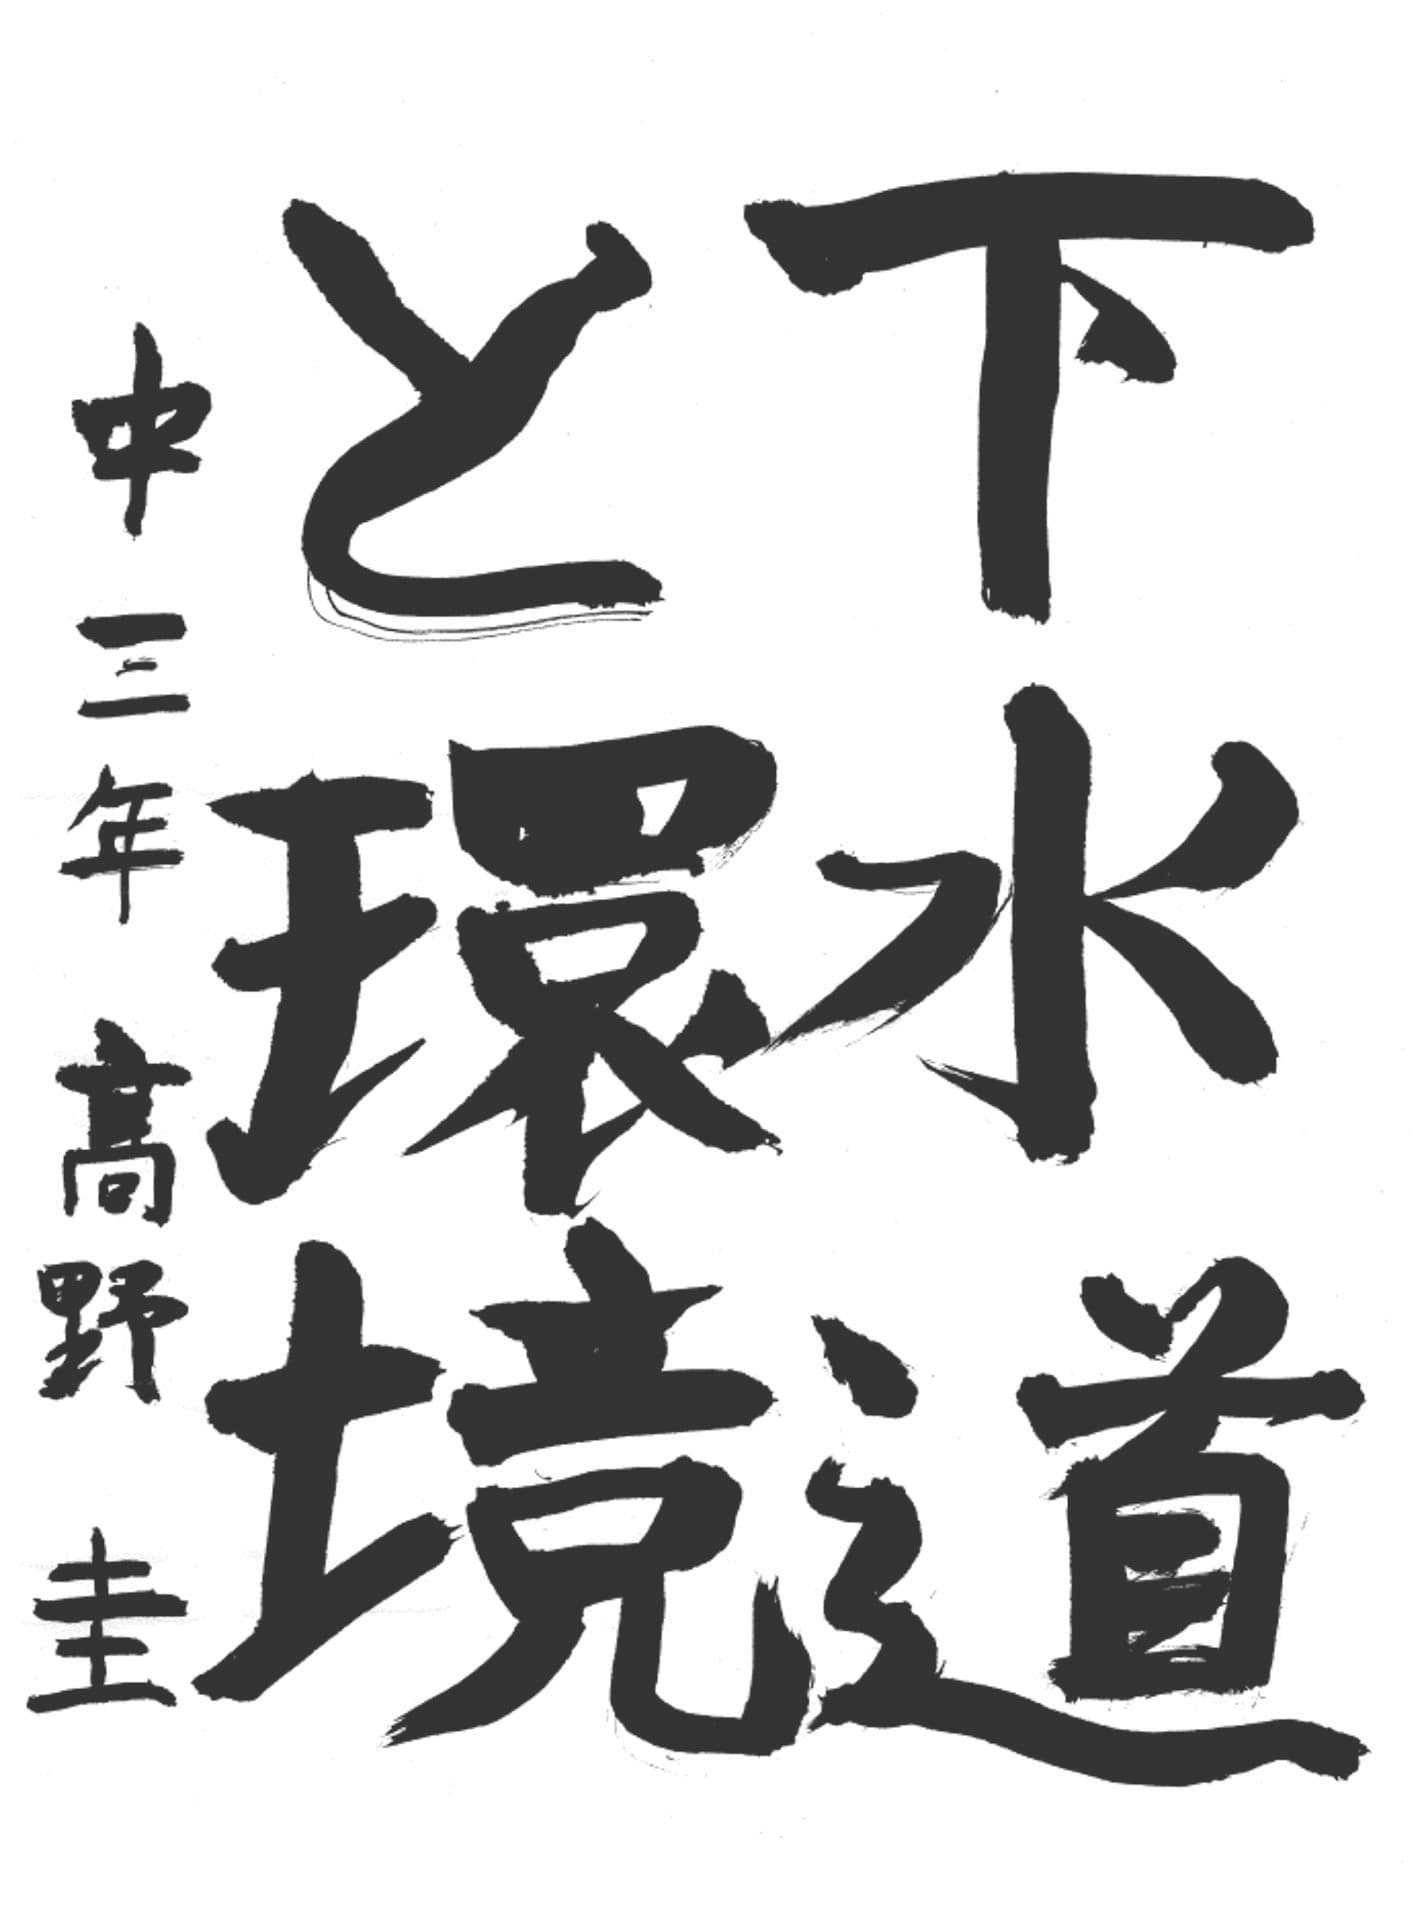 下水道
と環境
中三年 高野 圭